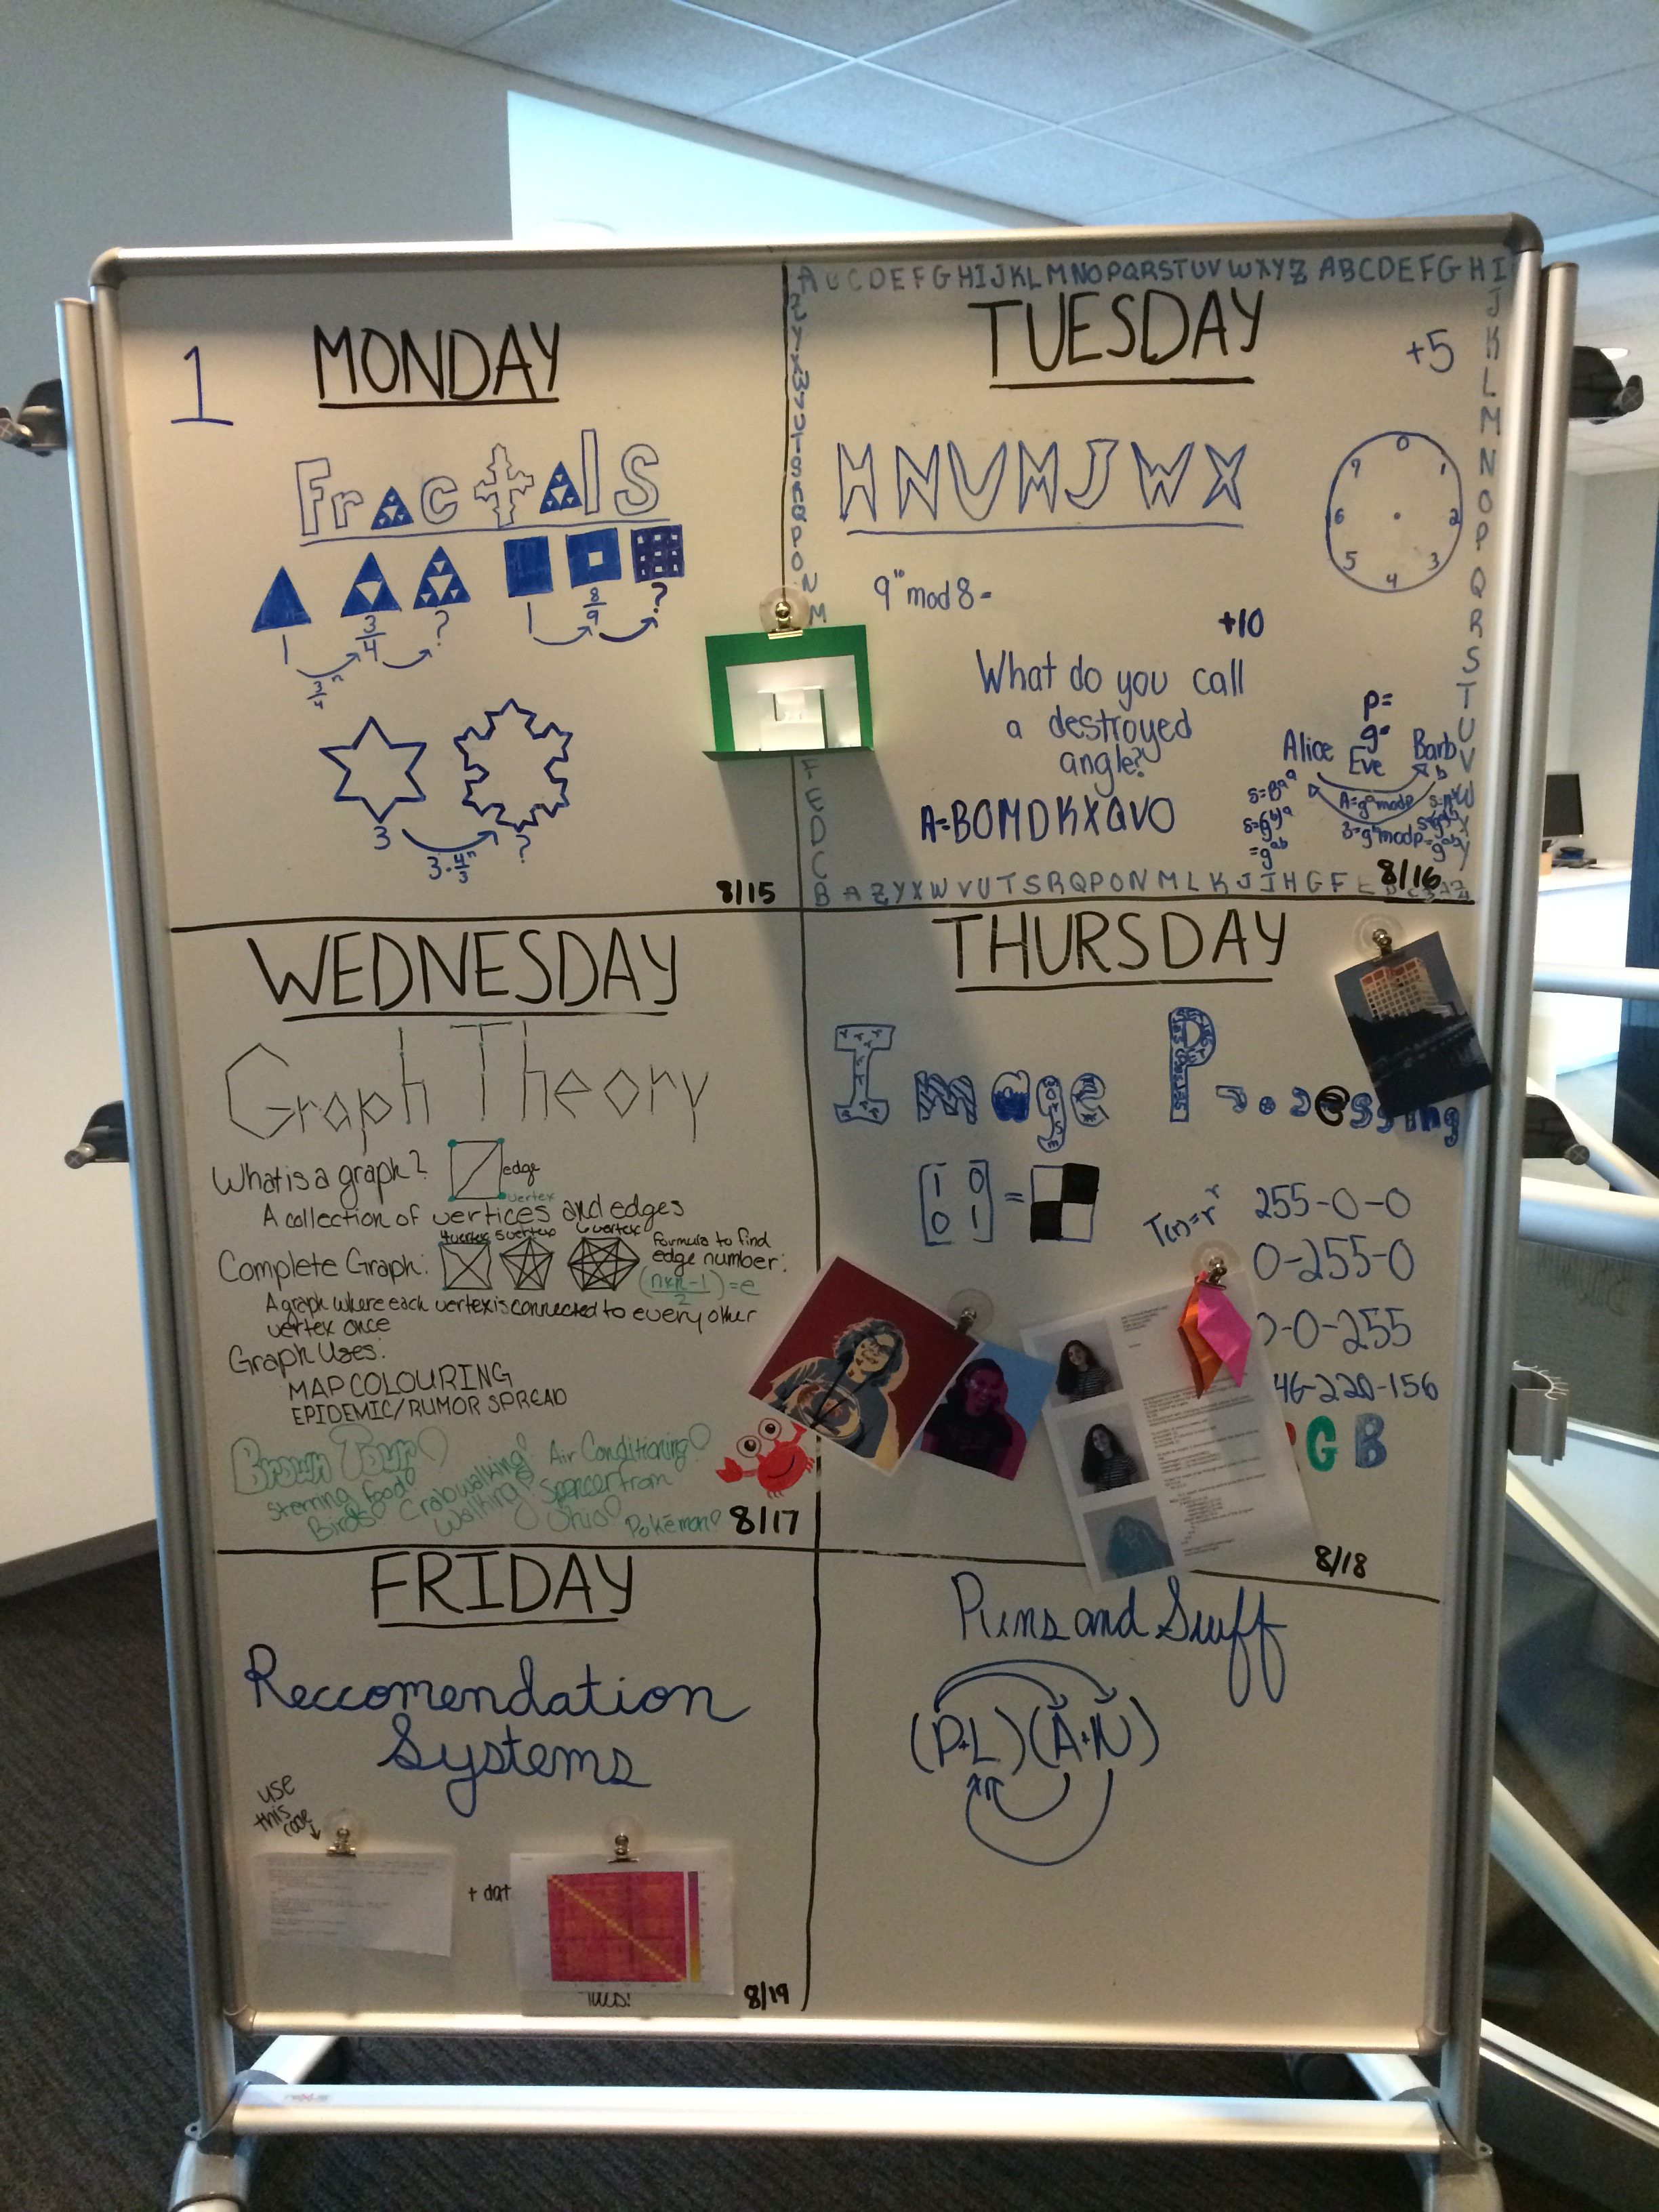 1
MONDAY
Fractals
1
3/4
?
3/4 n
1
8/9
?
3
3·4/3 n
?
8/15
ABCDEFGHIJKLMNOPQRSTUVWXYZABCDEFGHI
TUESDAY
+5
HNVMJWX
0
1
2
3
4
5
6
7
9 mod 8 =
+10
What do you call
a destroyed
angle?
A=BOMDKXQVO
P=
g=
Alice
Eve
Barb
A=g^a mod p
B=g^b mod p
=g^ab
8/16
JKLMNOPQRSTUVWXY
WEDNESDAY
Graph Theory
What is a graph?
edge
vertex
A collection of vertices and edges
4 vertex 5 vertex 6 vertex
Complete Graph:
Formula to find
edge number:
A graph where each vertex is connected to every other
vertex once
Graph Uses:
MAP COLOURING
EPIDEMIC/RUMOR SPREAD
Brown Tour!
Starring food!
Birds!
Crabwalking!
Walking!
Air Conditioning!
Spencer from
Ohio!
Pokémon!
8/17
THURSDAY
Image P
essing
[1 0
0 1] =
T(r)=r
255-0-0
0-255-0
-0-255
46-220-156
G B
8/18
FRIDAY
Reccomendation
Systems
use
this
code
+ dat
8/19
Puns and Stuff
(P+L)(A+N)